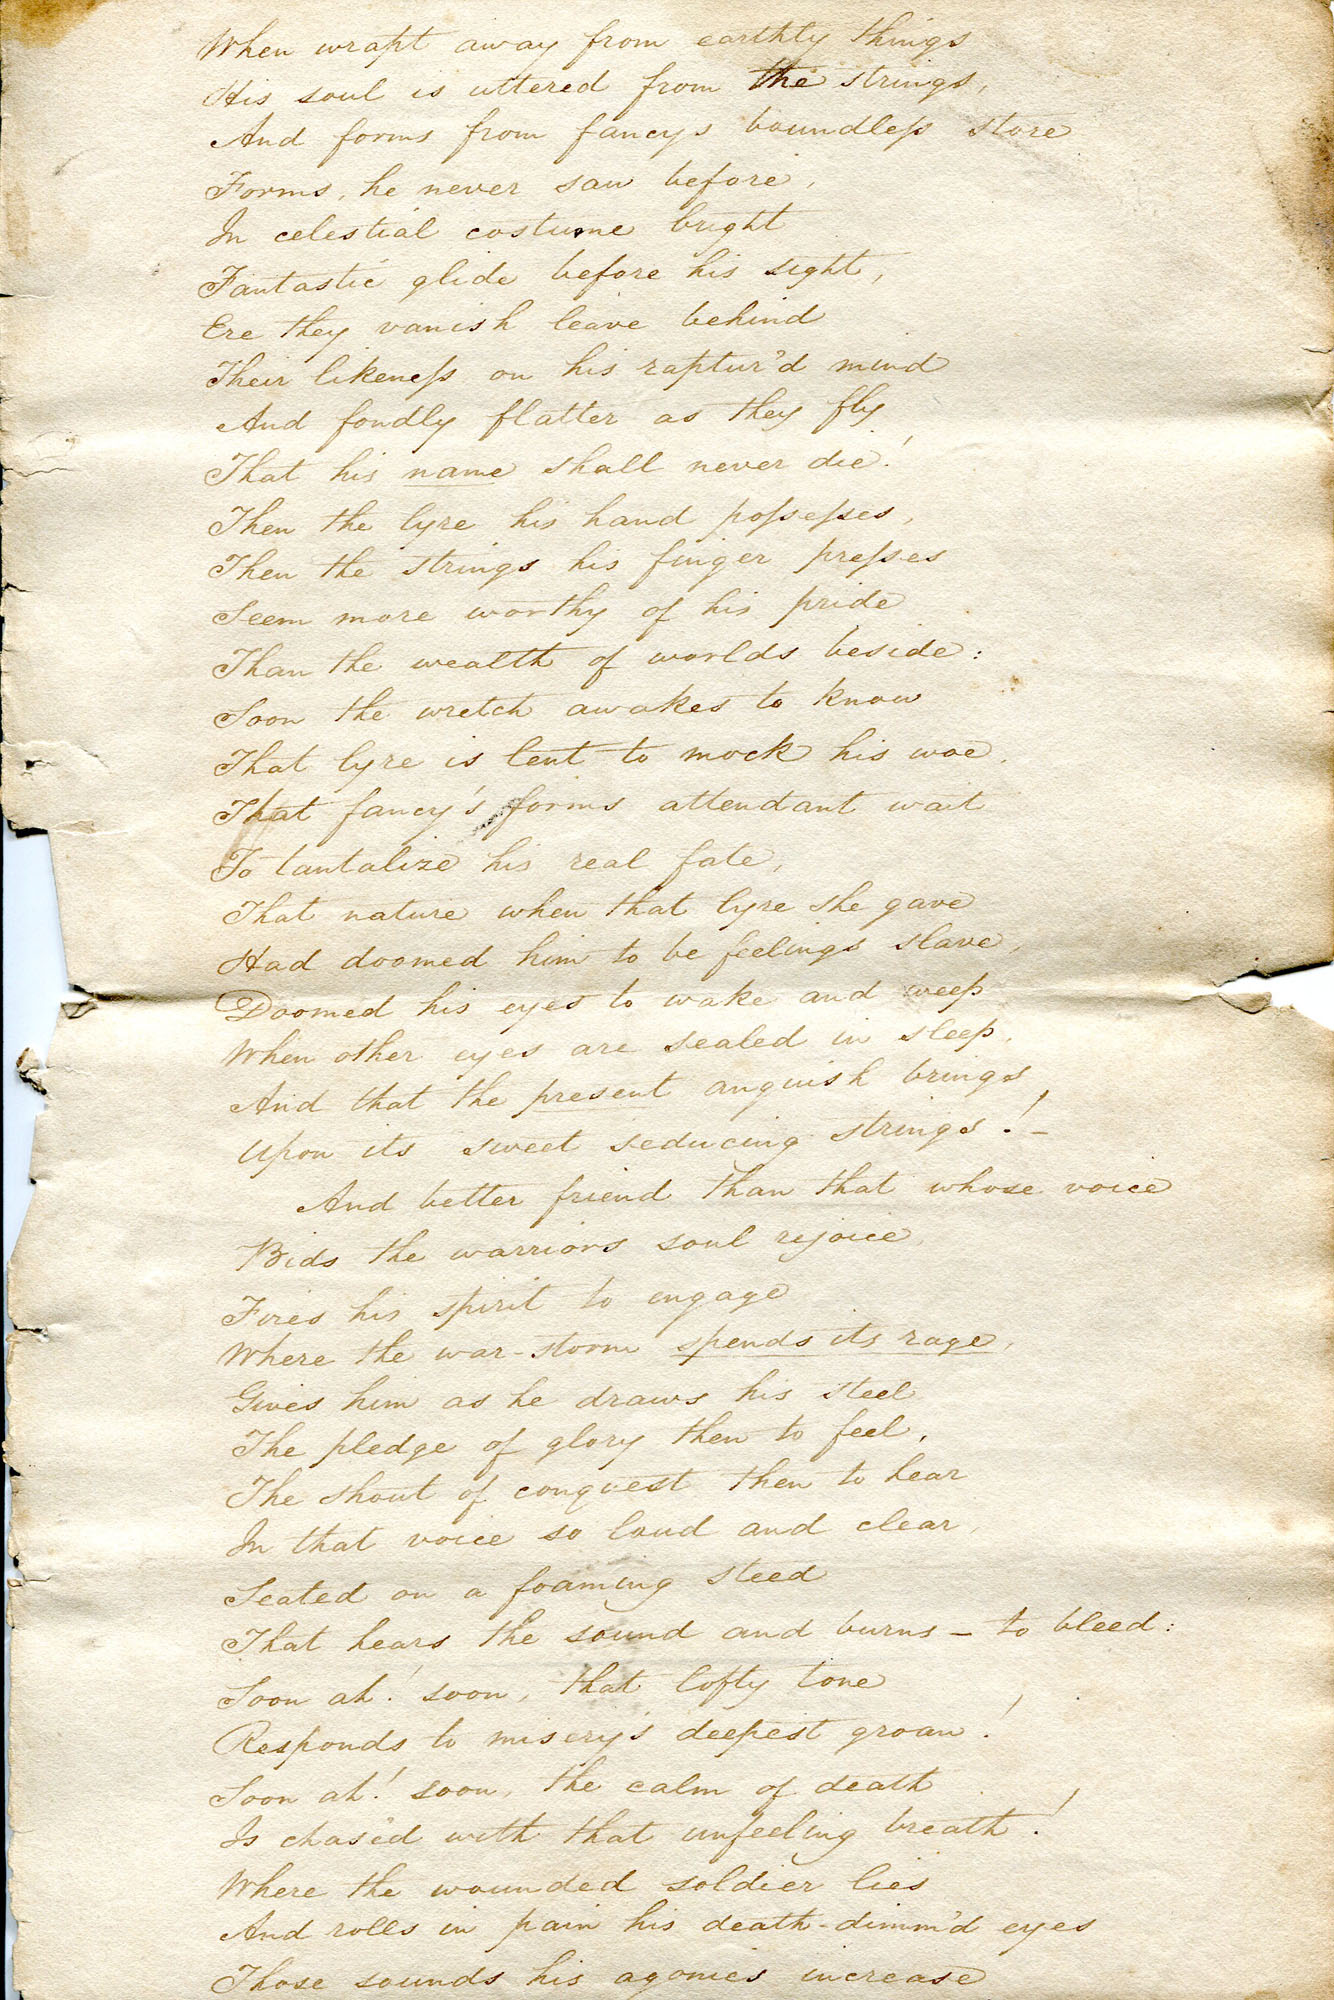 When wrapt away from earthly things
His soul is uttered from the strings,
And forms from fancys boundleſs store
Forms, he never saw before,
In celestial costume bright
Fantastic glide before his sight,
Ere they vanish leave behind
Their likeneſs on his raptur'd mind
And fondly flatter as they fly
That his name shall never die!
Then the lyre his hand poſseſses,
Then the strings his finger preſses
Seem more worthy of his pride
Than the wealth of worlds beside:
Soon the wretch awakes to know
That lyre is lent to mock his woe,
That fancy's forms attendant wait
To tantalize his real fate,
That nature when that lyre she gave
Had doomed him to be feelings slave,
Doomed his eyes to wake and weep
When other eyes are sealed in sleep,
And that the present anguish brings
Upon its sweet seducing strings! –
And better friend than that whose voice
Bids the warriors soul rejoice,
Fires his spirit to engage
Where the war-storm spends its rage,
Gives him as he draws his steel
The pledge of glory then to feel,
The shout of conquest then to hear
In that voice so loud and clear,
Seated on a foaming steed
That hears the sound and burns – to bleed:
Soon ah! soon, that lofty tone
Responds to misery's deepest groan!
Soon ah! soon, the calm of death
Is chas'd with that unfeeling breath!
Where the wounded soldier lies
And rolls in pain his death-dimm'd eyes
Those sounds his agonies increase